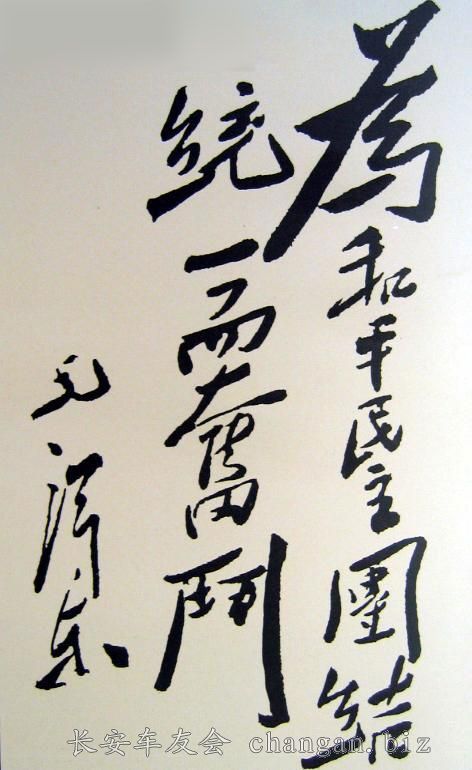 為和平民主團結
統一而奮鬥
毛澤東
长安车友会 changan.biz